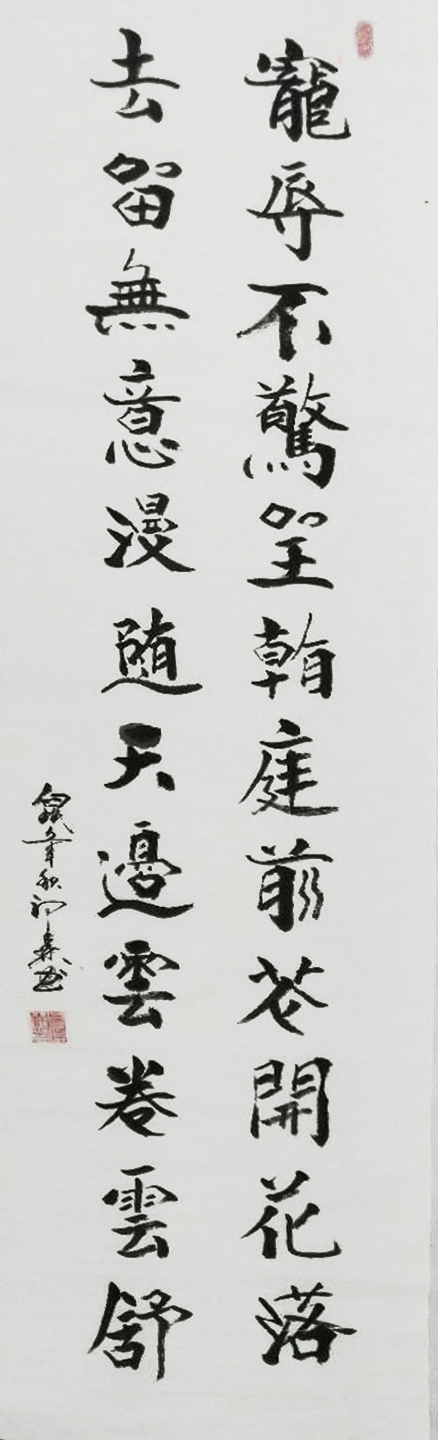 寵辱不驚坐看庭前花開花落
去留無意漫随天邊雲卷雲舒
鼠年秋初